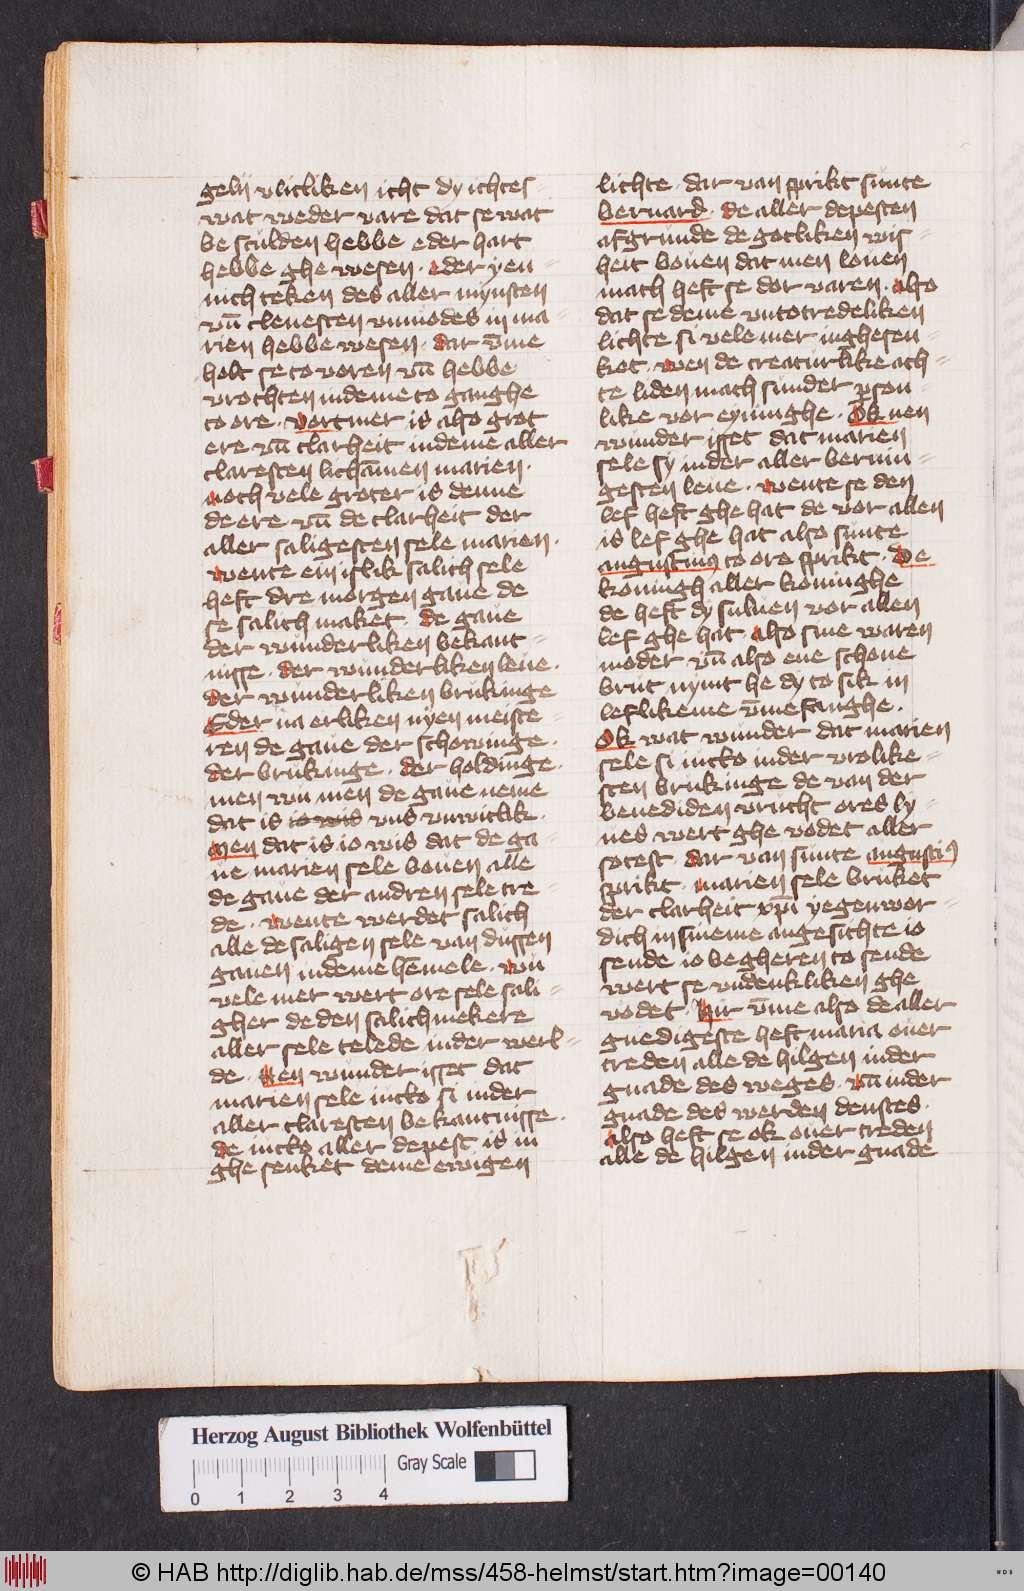 gelij vlicliken icht dy ichtes-
wat weder vare dat se wat
be sculden hebbe eder hart
hebbe ghe wesen. eder yen-
nich teken des aller mynsten
vn̄ clenesten vnmodes in ma-
rien hebbe wesen. dar v̄me
holt se to voren vn̄ hebbe
vrochten indeme to ganghe
to ore. vortmer is also grot
ere vn̄ clarheit indeme aller
claresten lichāmen marien.
noch vele groter is denne
de ere vn̄ de clarheit der
aller saligesten sele marien.
wente ein islik salich sele
heft dre morgen gaue de
se salich maket. de gaue
der wunderliken bekant-
nisse. der wunderliken leue.
der wunderliken brukinge
Eder na erliken nyen meiste-
ren de gaue der schowinge.
der brukinge. der holdinge.
men wu men de gaue neme
dat is io wis vns vnwitlik.
Men dat is io wis dat de ga-
ue marien sele bouen alle
de gaue der andren sele tre-
de. wente werdet salich
alle de saligen sele van dussen
gauen indeme hēmele. wu
vele mer wert ore sele sali-
gher de den salichmekere
aller sele telede inder werl-
de. Nen wunder isset dat
marien sele iucko si inder
aller claresten bekantnisse.
de iucko aller depest is in
ghe senket deme ewigen
lichte. dar van sprikt sunte
bernard. de aller depesten
afgrunde de gotliken wis-
heit bouen dat men louen
mach heft se dor varen. also
dat se deme vntotredeliken
lichte si vele mer inghesen-
ket. wen de creaturlike ach-
te liden mach sunder p̱son-
like vor eyninghe. Ok nen
wunder isset dat marien
sele sy inder aller bernin-
gesten leue. wente se den
lef heft ghe hat de vor allen
is lef ghe hat also sunte
augustinꝰ to ore sprikt. De
koningh aller koninghe
de heft dy suluen vor allen
lef ghe hat. also sine waren
moder vn̄ also ene schone
brut nymt he dy to sik in
leflikeme v̄mefanghe.
Ok wat wunder dat marien
sele si iucko inder vrolike-
sten brukinge de van der
benediden vrucht ores ly-
ues wert ghe vodet aller
sotest. dar van sunte augustiꝰ
sprikt. marien sele bruket
der clarheit xp̄i yegenwor-
dich in sineme angesichte io
sende io begheren to sende
wert se vndenkliken ghe
vodet. Hir v̄me also de aller
gnedigeste heft maria ouer
treden alle de hilgen inder
gnade des weges. vn̄ inder
gnade des werden denstes.
also heft se ok ouer treden
alle de hilgen inder gnade
Herzog August Bibliothek Wolfenbüttel
Gray Scale
0 1 2 3 4
© HAB http://diglib.hab.de/mss/458-helmst/start.htm?image=00140